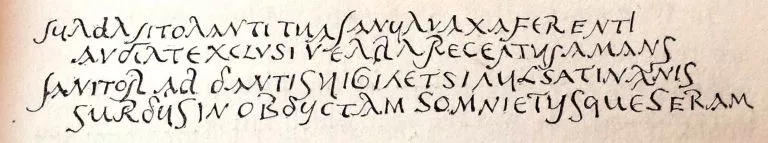 SURDA SIT ORANTI TUA IANUA LAXA FERENTI
AUDIAT EXCLUSI VERBA RECEPTUS AMANS
IANITOR AD DANTIS VIGILET SI PULSAT INANIS
SURDUS IN OBDUCTAM SOMNIET USQUE SERAM